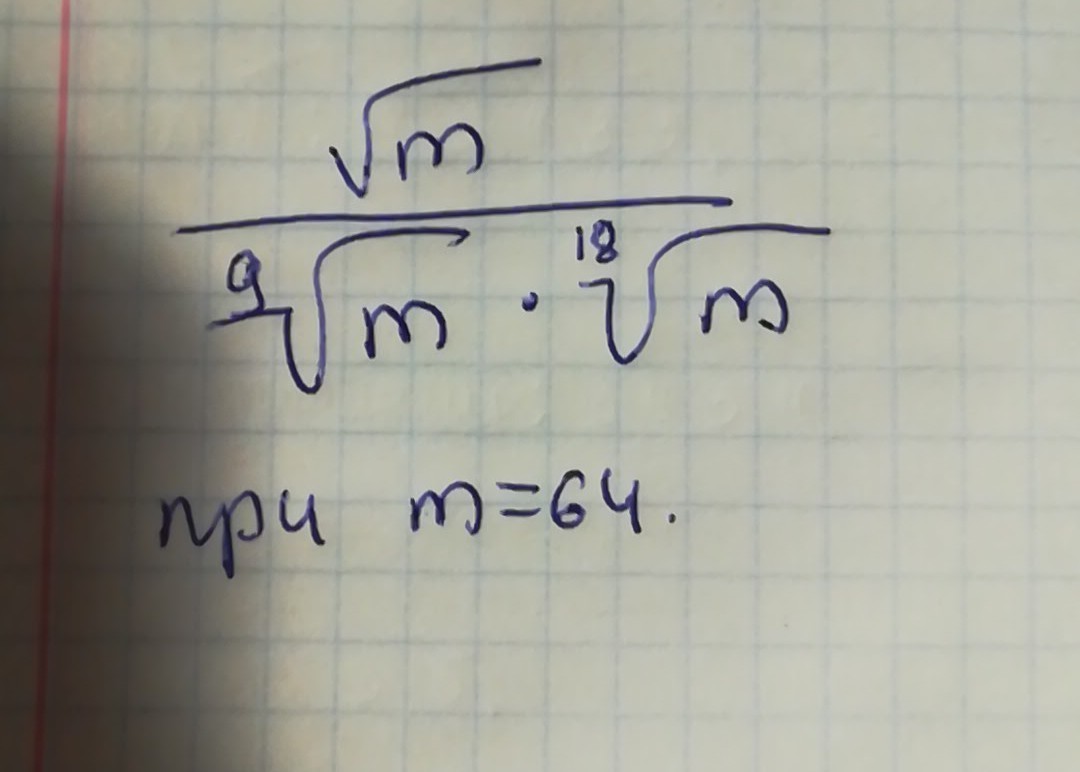 √m
⁹√m · ¹⁸√m
при m=64.